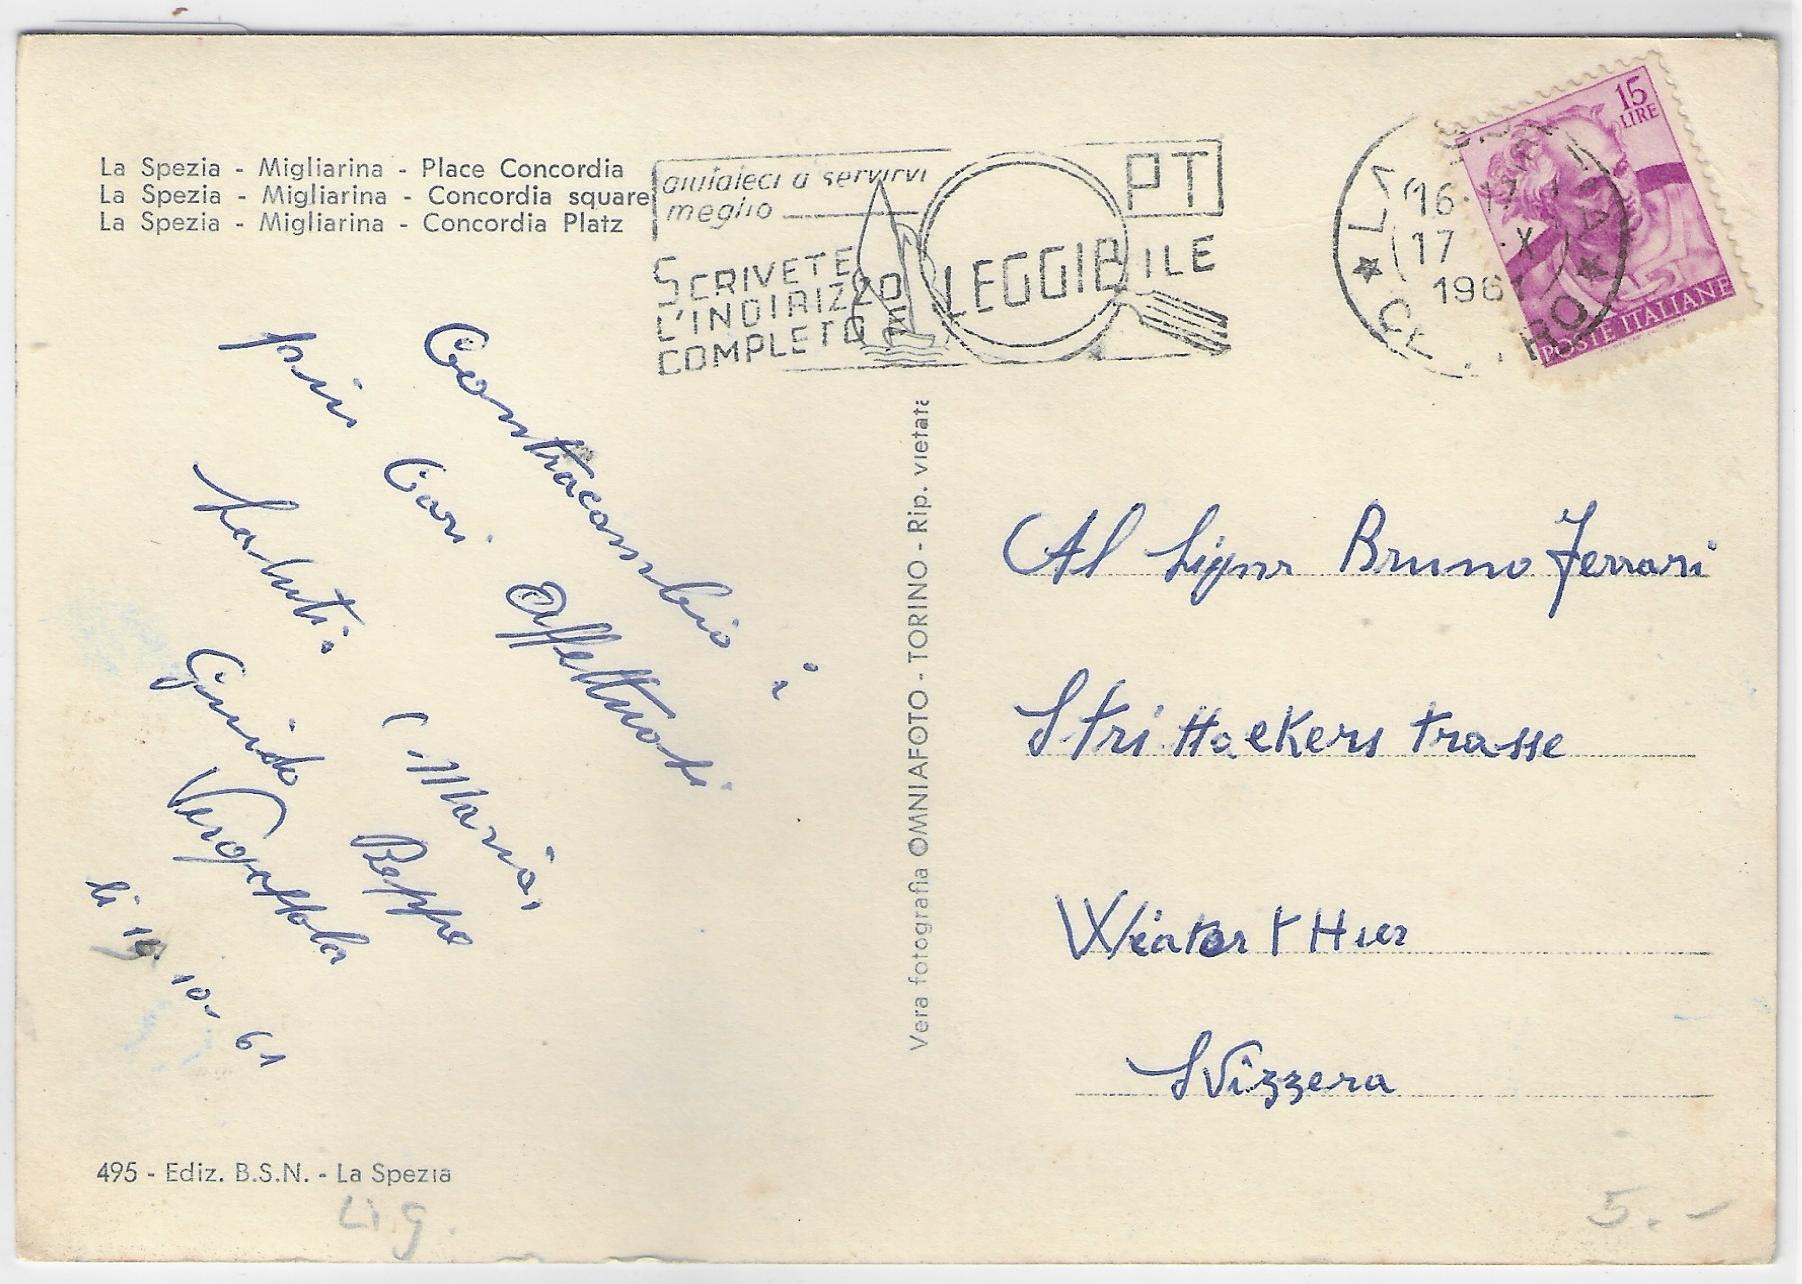 La Spezia - Migliarina - Place Concordia
La Spezia - Migliarina - Concordia square
La Spezia - Migliarina - Concordia Platz
aiutateci a servirvi
meglio
PT
SCRIVETE
L'INDIRIZZO
COMPLETO E
LEGGIBILE
16-17
17 X
1961
15
LIRE
POSTE ITALIANE
Contracambio i
più Cari Affettuosi
Saluti.
(Maria,
Guido Beppe
li 10 61
Vera fotografia OMNIAFOTO - TORINO - Rip. vietata
Al Signr Bruno Ferrari
Strittackers trasse
WinterT Hur
SVizzera
495 - Ediz. B.S.N. - La Spezia
Lig.
5.-